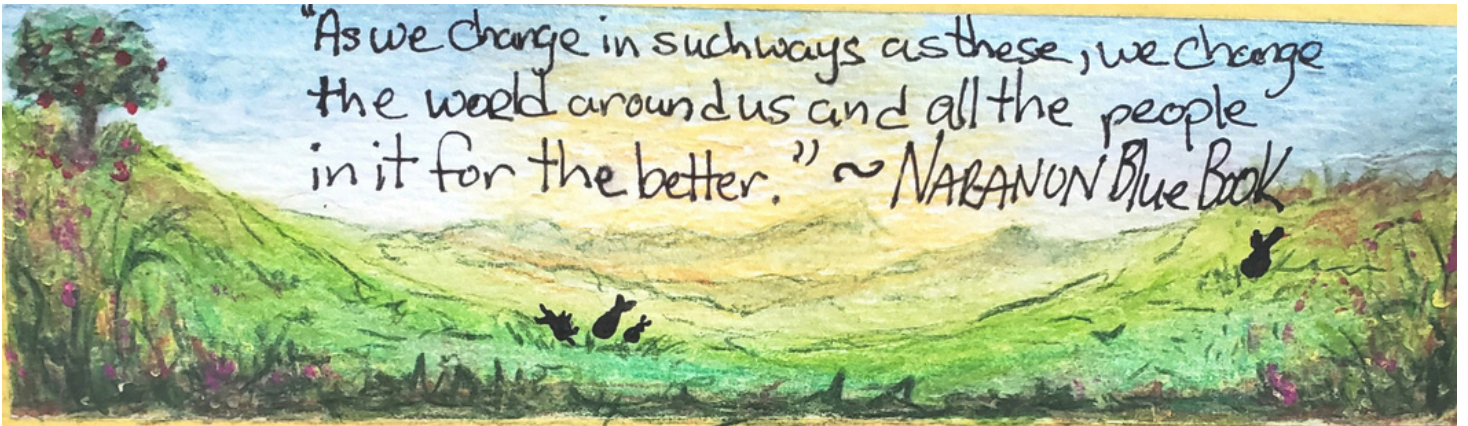 "As we change in such ways as these, we change
the world around us and all the people
in it for the better." ~ NARANON Blue Book